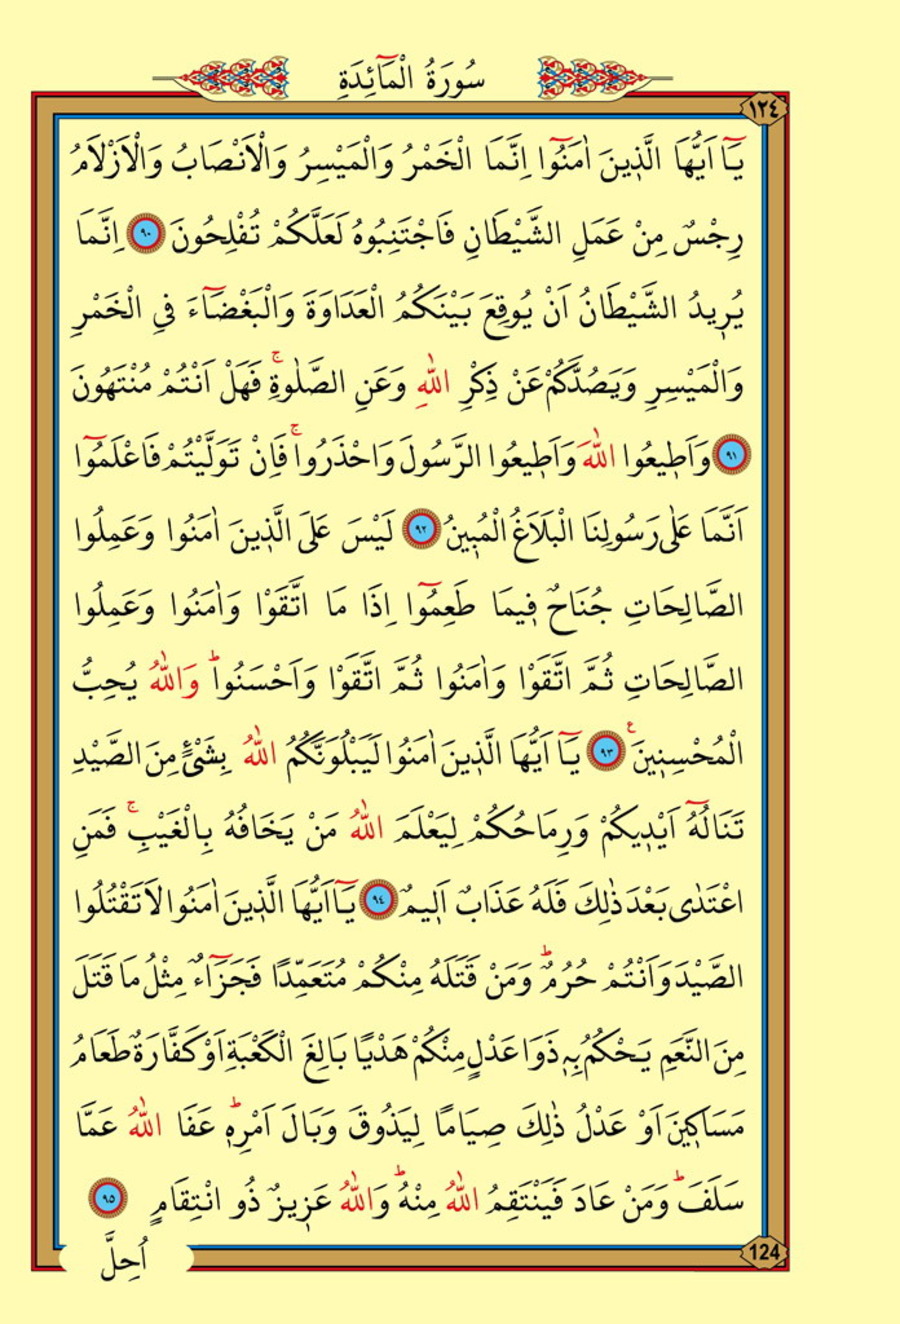 سُورَةُ الْمَٓائِدَةِ
١٢٤
يَٓا اَيُّهَا الَّذ۪ينَ اٰمَنُٓوا اِنَّمَا الْخَمْرُ وَالْمَيْسِرُ وَالْاَنْصَابُ وَالْاَزْلَامُ
رِجْسٌ مِنْ عَمَلِ الشَّيْطَانِ فَاجْتَنِبُوهُ لَعَلَّكُمْ تُفْلِحُونَ ٩٠ اِنَّمَا
يُر۪يدُ الشَّيْطَانُ اَنْ يُوقِعَ بَيْنَكُمُ الْعَدَاوَةَ وَالْبَغْضَٓاءَ فِي الْخَمْرِ
وَالْمَيْسِرِ وَيَصُدَّكُمْ عَنْ ذِكْرِ اللّٰهِ وَعَنِ الصَّلٰوةِۚ فَهَلْ اَنْتُمْ مُنْتَهُونَ
٩١ وَاَط۪يعُوا اللّٰهَ وَاَط۪يعُوا الرَّسُولَ وَاحْذَرُواۚ فَاِنْ تَوَلَّيْتُمْ فَاعْلَمُٓوا
اَنَّمَا عَلٰى رَسُولِنَا الْبَلَاغُ الْمُب۪ينُ ٩٢ لَيْسَ عَلَى الَّذ۪ينَ اٰمَنُوا وَعَمِلُوا
الصَّالِحَاتِ جُنَاحٌ ف۪يمَا طَعِمُٓوا اِذَا مَا اتَّقَوْا وَاٰمَنُوا وَعَمِلُوا
الصَّالِحَاتِ ثُمَّ اتَّقَوْا وَاٰمَنُوا ثُمَّ اتَّقَوْا وَاَحْسَنُواؕ وَاللّٰهُ يُحِبُّ
الْمُحْسِن۪ينَ ع ٩٣ يَٓا اَيُّهَا الَّذ۪ينَ اٰمَنُوا لَيَبْلُوَنَّكُمُ اللّٰهُ بِشَيْءٍ مِنَ الصَّيْدِ
تَنَالُهُٓ اَيْد۪يكُمْ وَرِمَاحُكُمْ لِيَعْلَمَ اللّٰهُ مَنْ يَخَافُهُ بِالْغَيْبِۚ فَمَنِ
اعْتَدٰى بَعْدَ ذٰلِكَ فَلَهُ عَذَابٌ اَل۪يمٌ ٩٤ يَٓا اَيُّهَا الَّذ۪ينَ اٰمَنُوا لَا تَقْتُلُوا
الصَّيْدَ وَاَنْتُمْ حُرُمٌؕ وَمَنْ قَتَلَهُ مِنْكُمْ مُتَعَمِّدًا فَجَزَٓاءٌ مِثْلُ مَا قَتَلَ
مِنَ النَّعَمِ يَحْكُمُ بِه۪ ذَوَا عَدْلٍ مِنْكُمْ هَدْيًا بَالِغَ الْكَعْبَةِ اَوْ كَفَّارَةٌ طَعَامُ
مَسَاك۪ينَ اَوْ عَدْلُ ذٰلِكَ صِيَامًا لِيَذُوقَ وَبَالَ اَمْرِه۪ؕ عَفَا اللّٰهُ عَمَّا
سَلَفَؕ وَمَنْ عَادَ فَيَنْتَقِمُ اللّٰهُ مِنْهُؕ وَاللّٰهُ عَز۪يزٌ ذُو انْتِقَامٍ ٩٥
اُحِلَّ
124